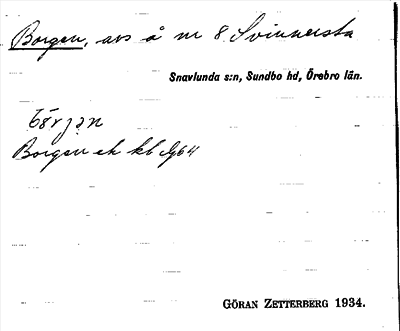 Borgen, avs å nr 8 Svinnersta
Snavlunda s:n, Sundbo hd, Örebro län.
bör̡ jan
Borgen ek kbl
GÖRAN ZETTERBERG 1934.